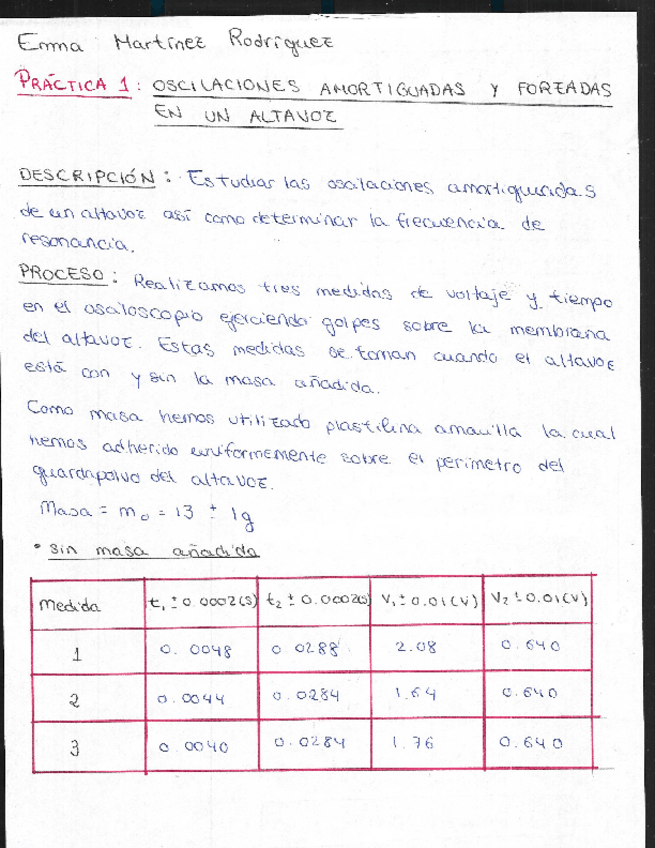 Emma Martínez Rodríguez
PRÁCTICA 1: OSCILACIONES AMORTIGUADAS Y FORZADAS
EN UN ALTAVOZ
DESCRIPCIÓN: Estudiar las oscilaciones amortiguadas
de un altavoz así como determinar la frecuencia de
resonancia.
PROCESO: Realizamos tres medidas de voltaje y tiempo
en el osciloscopio ejerciendo golpes sobre la membrana
del altavoz. Estas medidas se toman cuando el altavoz
está con y sin la masa añadida.
Como masa hemos utilizado plastilina amarilla la cual
hemos adherido uniformemente sobre el perímetro del
guardapolvo del altavoz.
Masa = m₀ = 13 ± 1g
• sin masa añadida
Medida t₁ ± 0.0002(s) t₂ ± 0.0002(s) V₁ ± 0.01(V) V₂ ± 0.01(V)
1 0.0048 0.0288 2.08 0.640
2 0.0044 0.0284 1.64 0.640
3 0.0040 0.0284 1.76 0.640